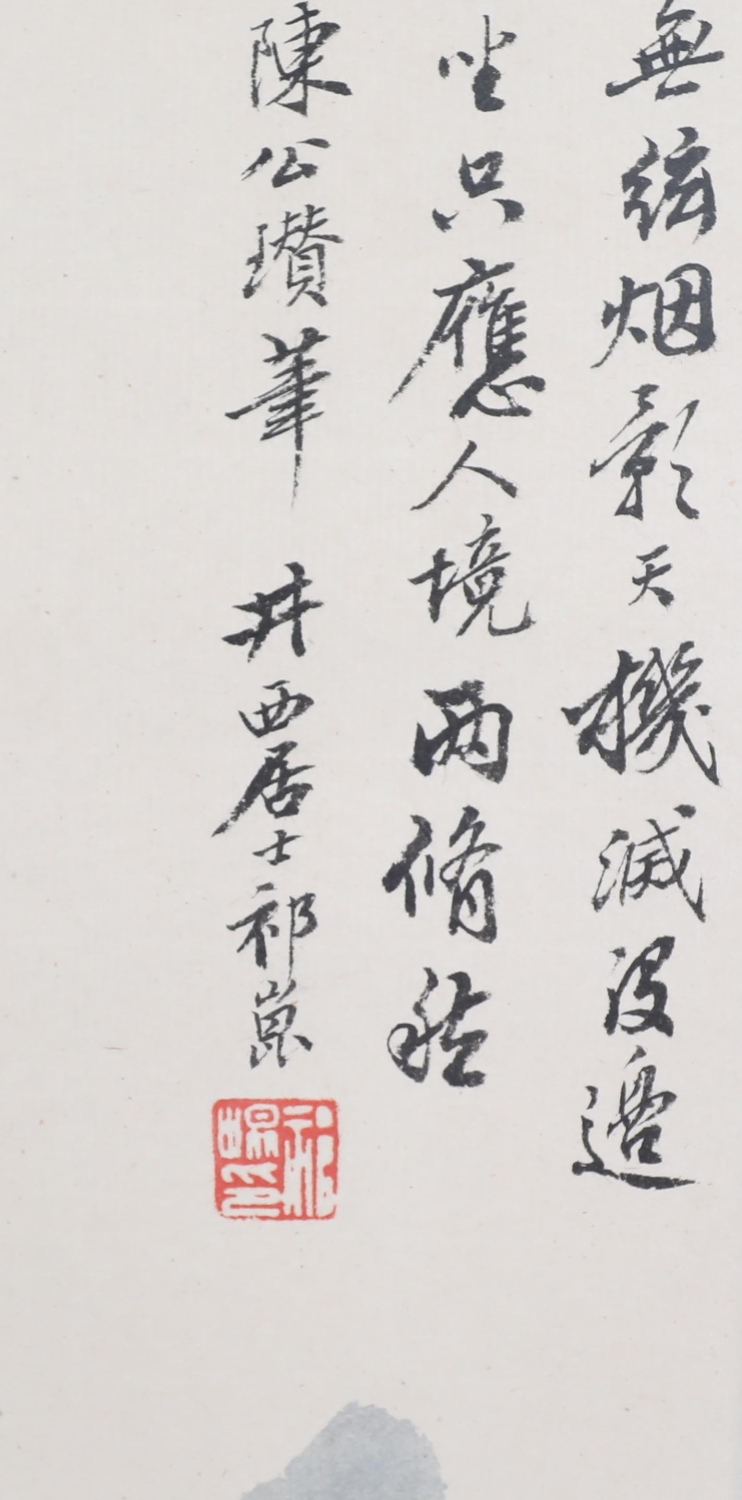 無絃烟影天機滅没邊
坐只應人境两脩然
陳公瓚筆 井西居士祁崑
祁崐印